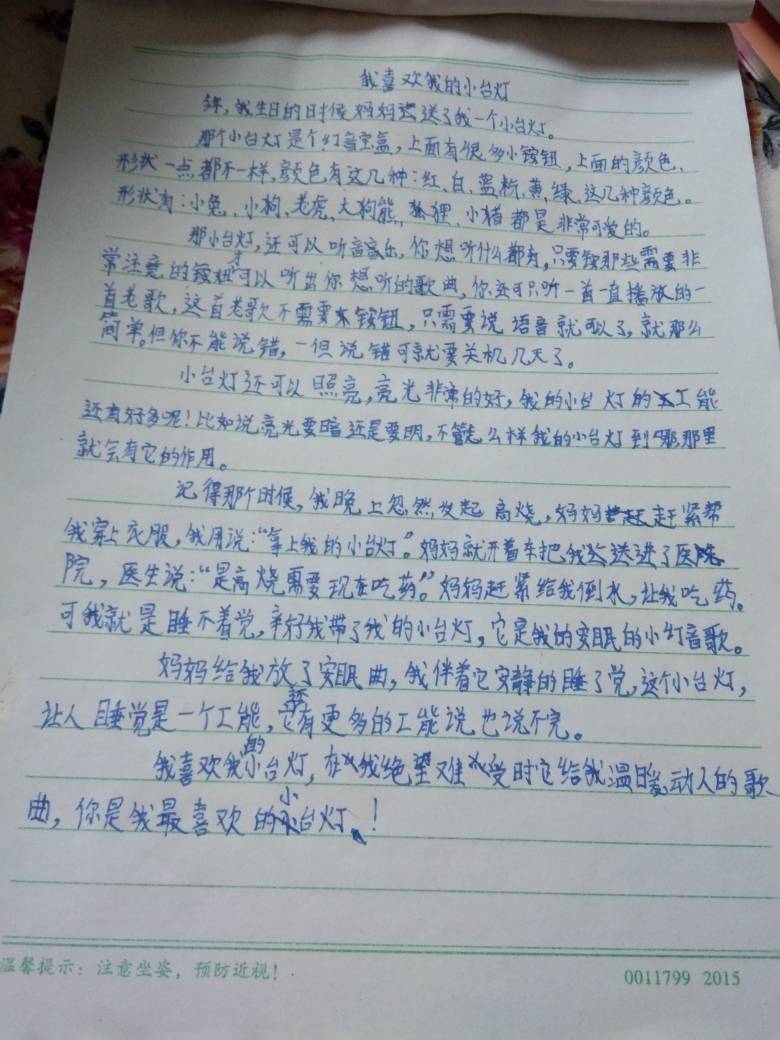 我喜欢我的小台灯
我生日的时候妈妈送了我一个小台灯。
那个小台灯是个灯音宝盒,上面有很多小铵钮,上面的颜色、
形状一点都不一样,颜色有这几种:红、白、蓝、粉、黄、绿、这几种颜色。
形状有:小兔、小狗、老虎、大狗熊、狐狸、小猪都是非常可爱的。
那小台灯,还可以听音乐,你想听什么都有,只要铵那些需要非
常注意的铵钮才可以听出你想听的歌曲,你还可只听一首一直播放的一
首老歌,这首老歌不需要铵钮,只需要说语音就可以了,就那么
简单。但你不能说错,一但说错可就要关机几天了。
小台灯还可以照亮,亮光非常的好,我的小台灯的工能
还有好多呢!比如说亮光要暗还是要明,不管怎么样我的小台灯到哪那里
就会有它的作用。
记得那个时候,我晚上忽然发起高烧,妈妈赶紧帮
我穿上衣服,我说:“拿上我的小台灯”。妈妈就开着车把我送进了医
院,医生说:“是高烧需要现在吃药。”妈妈赶紧给我倒水,让我吃药。
可我就是睡不着觉,幸好我带了我的小台灯,它是我的安眠的小灯音歌。
妈妈给我放了安眠曲,我伴着它安静的睡了觉,这个小台灯,
让人睡觉是一个工能,它有更多的工能说也说不完。
我喜欢我的小台灯,在我绝望难受时它给我温暖动人的歌
曲,你是我最喜欢的小台灯!
温馨提示:注意坐姿,预防近视!
0011799 2015